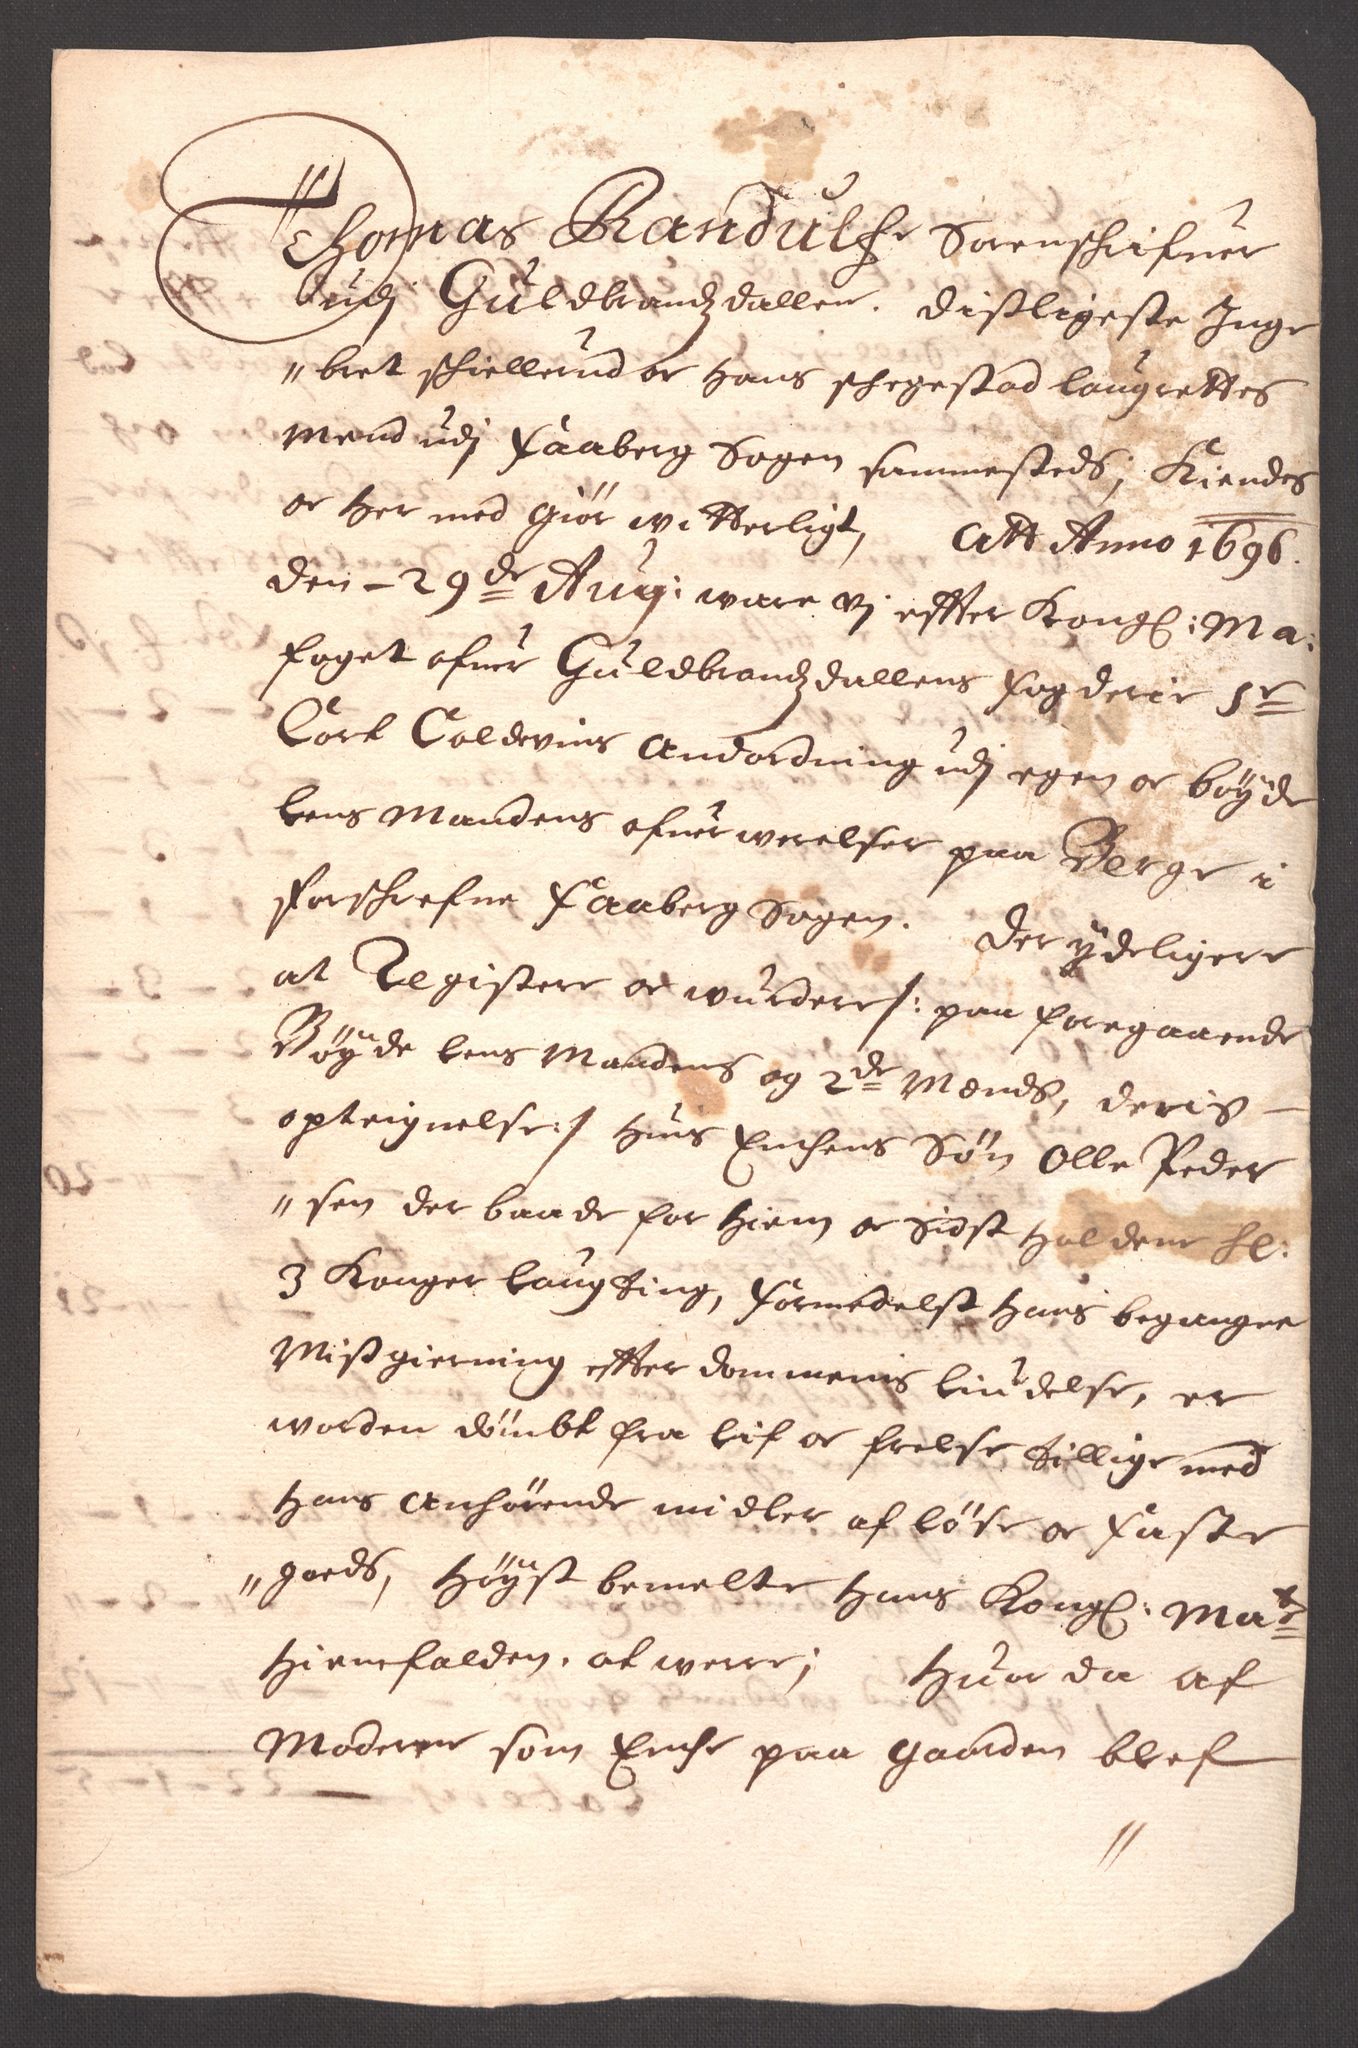 Thomas Randulf Sorenschrifuer
udj Guldbrandzdallen. disligeste Inge
"bret schiellerud oc Hans schegestad laugrettes
Mend udj Faaberg Sogen sammesteds; Kiendes
oc Her med giör witterligt, Att Anno 1696.
den - 29de Aug: ware vj effter Kongl: Ma:
foget ofuer Guldbrandzdallens fogderie Sr
Cort Coldevins Andordning udj egen oc böyde
lens Mandens ofuerwerelser paa Berge i
forschrefne Faaberg Sogen. Der ydeligere
at Registere oc wurdere /: paa foregaaende
Böyde lens Mandens og 2de Mends, deris
opteignelse :/ Huis Enchens Sön Olle Peder
"sen der baade for Hiem oc sidst holdene Sl:
3 Konger laugting, formedelst Hans begangne
Missgierning effter dommenis liudelse, er
worden dömbt fra lif oc frelse tillige med
Hans anhörende midler af löse oc faste
"goeds, Höyst bemelte Hans Kongl: Mats
Hienefalden. at were; Huor da af
Moderen som Enche paa gaarden blef
"